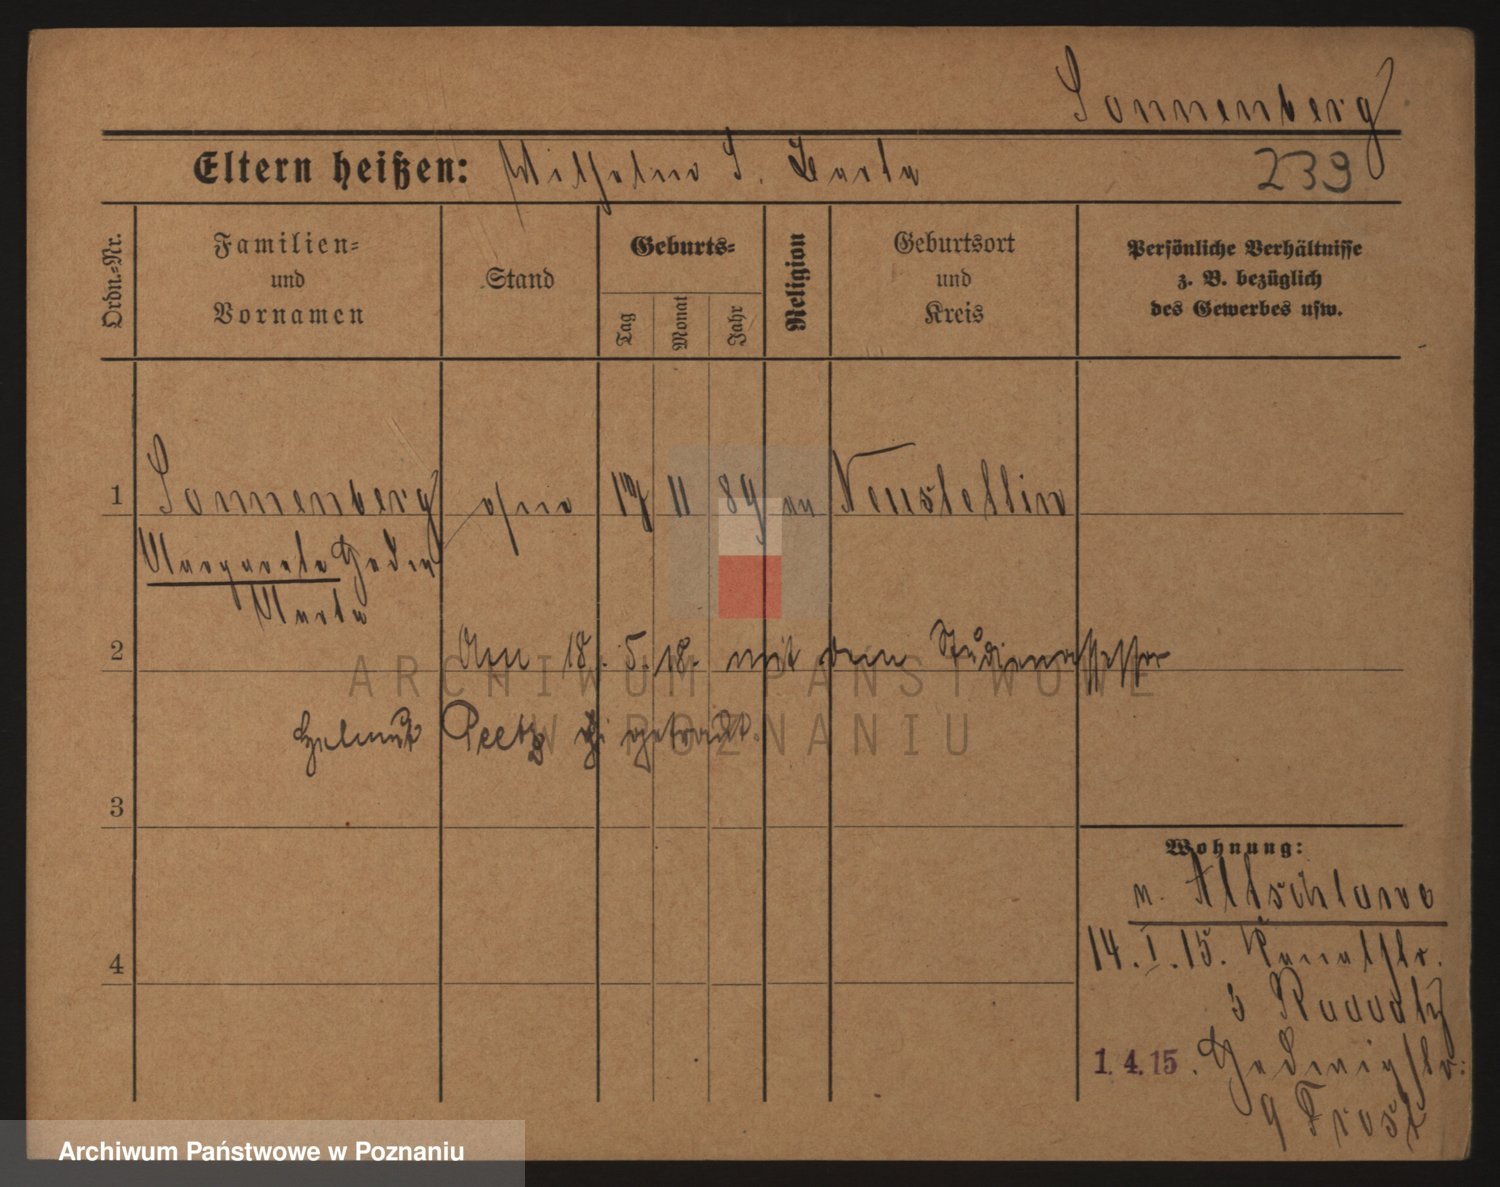 Sonnenberg
Eltern heißen: Wilhelm S. Berta
239
Ordn.-Nr.
Familien- und Vornamen
Stand
Geburts-
Tag
Monat
Jahr
Religion
Geburtsort und Kreis
Persönliche Verhältnisse z. B. bezüglich des Gewerbes usw.
1 Sonnenberg ohne 17 11 89 ev Neustettin
Margarete Hedw
Marta
2 Am 18. 5. 18. mit dem Studienassessor
Helmut Peetz getraut.
3
Wohnung:
v. Altschlawe
4
14. I. 15. Kanalstr.
3 Raddatz
1. 4. 15. Hedwigstr.
9
ARCHIWUM PAŃSTWOWE
W POZNANIU
Archiwum Państwowe w Poznaniu